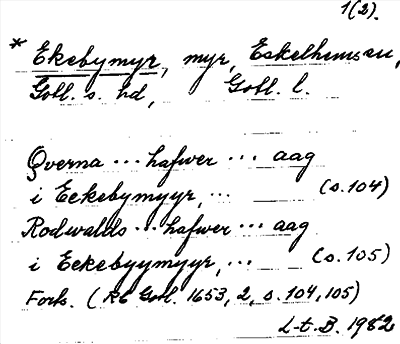 1(2).
* Ekebymyr, myr, Eskelhems sn,
Gotl. s. hd, Gotl. l.
Qverna ... hafwer ... aag
i Eckebymyyr, ... (s. 104)
Rodwalds ... hafwer ... aag
i Eckebyymyyr, ... (s. 105)
Forts. (RB Gotl. 1653, 2, s. 104, 105)
L-t. B. 1982